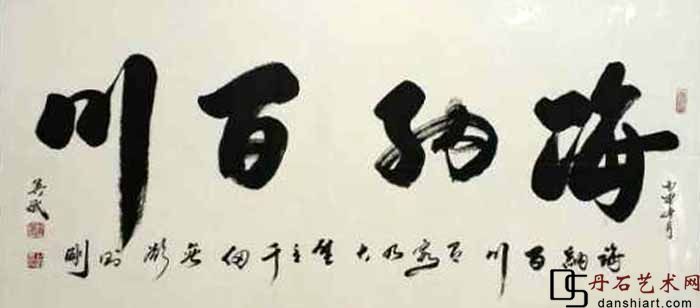 海纳百川
海納百川有容乃大壁立千仞無欲則剛
丹石艺术网
danshiart.com